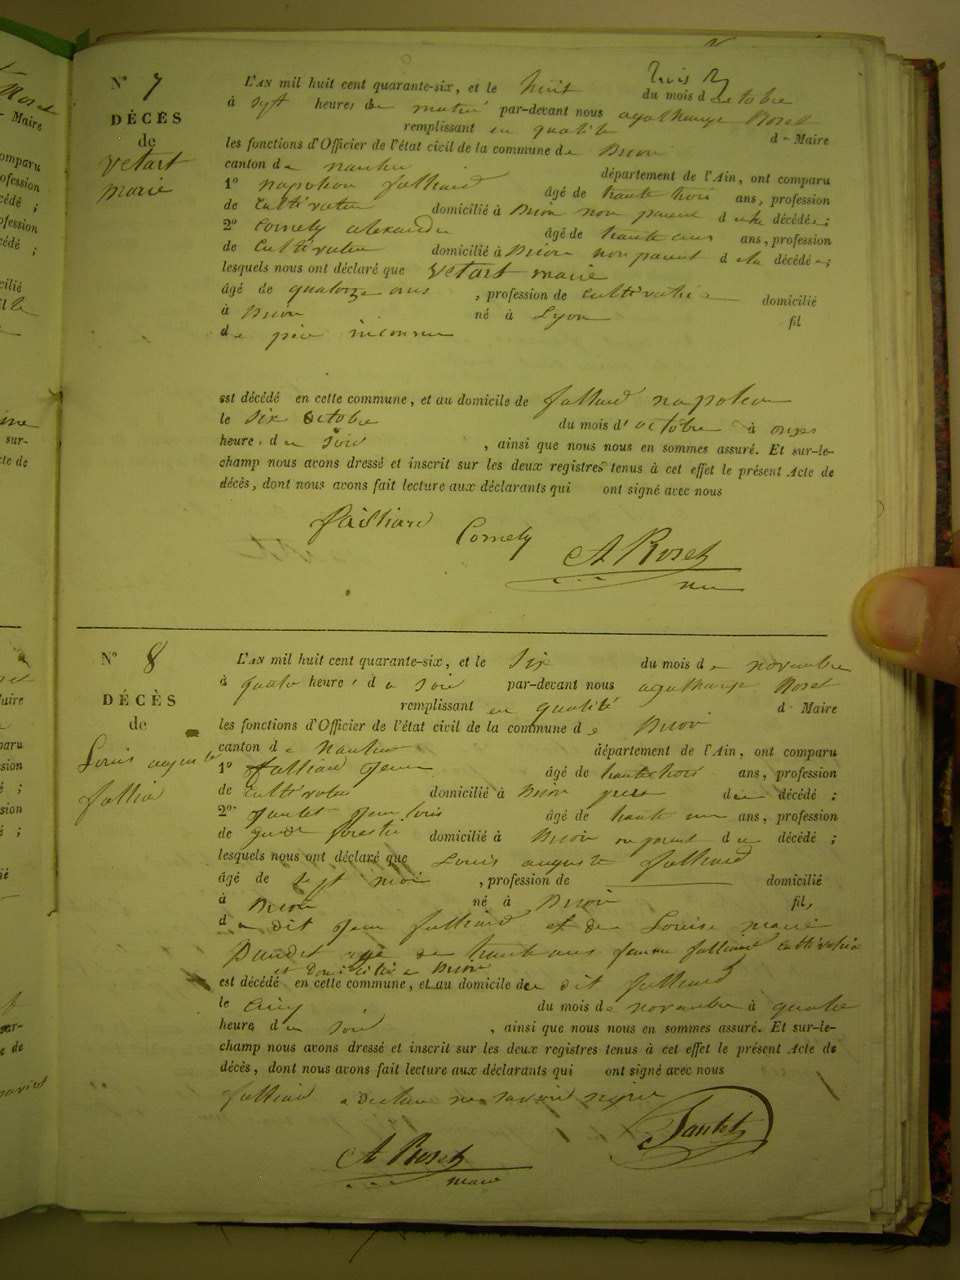 N° 7
DÉCÈS
de
vetart
marie
L'AN mil huit cent quarante-six, et le huit du mois d octobre
à sept heures du matin par-devant nous agathange Roset
remplissant en qualité d - Maire
les fonctions d'Officier de l'état civil de la commune de Brion
canton de nantua département de l'Ain, ont comparu
1° napoléon falliard âgé de trente trois ans, profession
de cultivateur domicilié à Brion non parent d e la décédée;
2° Comely alexandre âgé de trente ans, profession
de cultivateur domicilié à Brion non parent d e la décédée;
lesquels nous ont déclaré que vetart marie
âgé de quatorze ans, profession de cultivatrice domicilié
à Brion né à Lyon fil
de père inconnu
est décédé en cette commune, et au domicile de falliard napoléon
le six octobre du mois d'octobre à onze
heure. du soir, ainsi que nous nous en sommes assuré. Et sur-le-
champ nous avons dressé et inscrit sur les deux registres tenus à cet effet le présent Acte de
décès, dont nous avons fait lecture aux déclarants qui ont signé avec nous
falliard Comely
A Roset
N° 8
DÉCÈS
de
Louis auguste
L'AN mil huit cent quarante-six, et le six du mois de novembre
à quatre heure, du soir par-devant nous agathange Roset
remplissant en qualité d - Maire
les fonctions d'Officier de l'état civil de la commune de Brion
canton de Nantua département de l'Ain, ont comparu
1° falliard Jean âgé de trente trois ans, profession
de cultivateur domicilié à Brion père du décédé;
2° Jantet Jean Louis âgé de trente ans, profession
de garde forestier domicilié à Brion non parent du décédé;
lesquels nous ont déclaré que Louis auguste falliard
âgé de sept mois, profession de domicilié
à Brion né à Brion fil,
du dit Jean falliard et de Louise marie
âgé de trente ans femme falliard cultivatrice
et domicilié à Brion
est décédé en cette commune, et au domicile du dit falliard
le cinq du mois de novembre à quatre
heure du soir, ainsi que nous nous en sommes assuré. Et sur-le-
champ nous avons dressé et inscrit sur les deux registres tenus à cet effet le présent Acte de
décès, dont nous avons fait lecture aux déclarants qui ont signé avec nous
falliard a déclaré ne savoir signer
Jantet
A Roset
maire